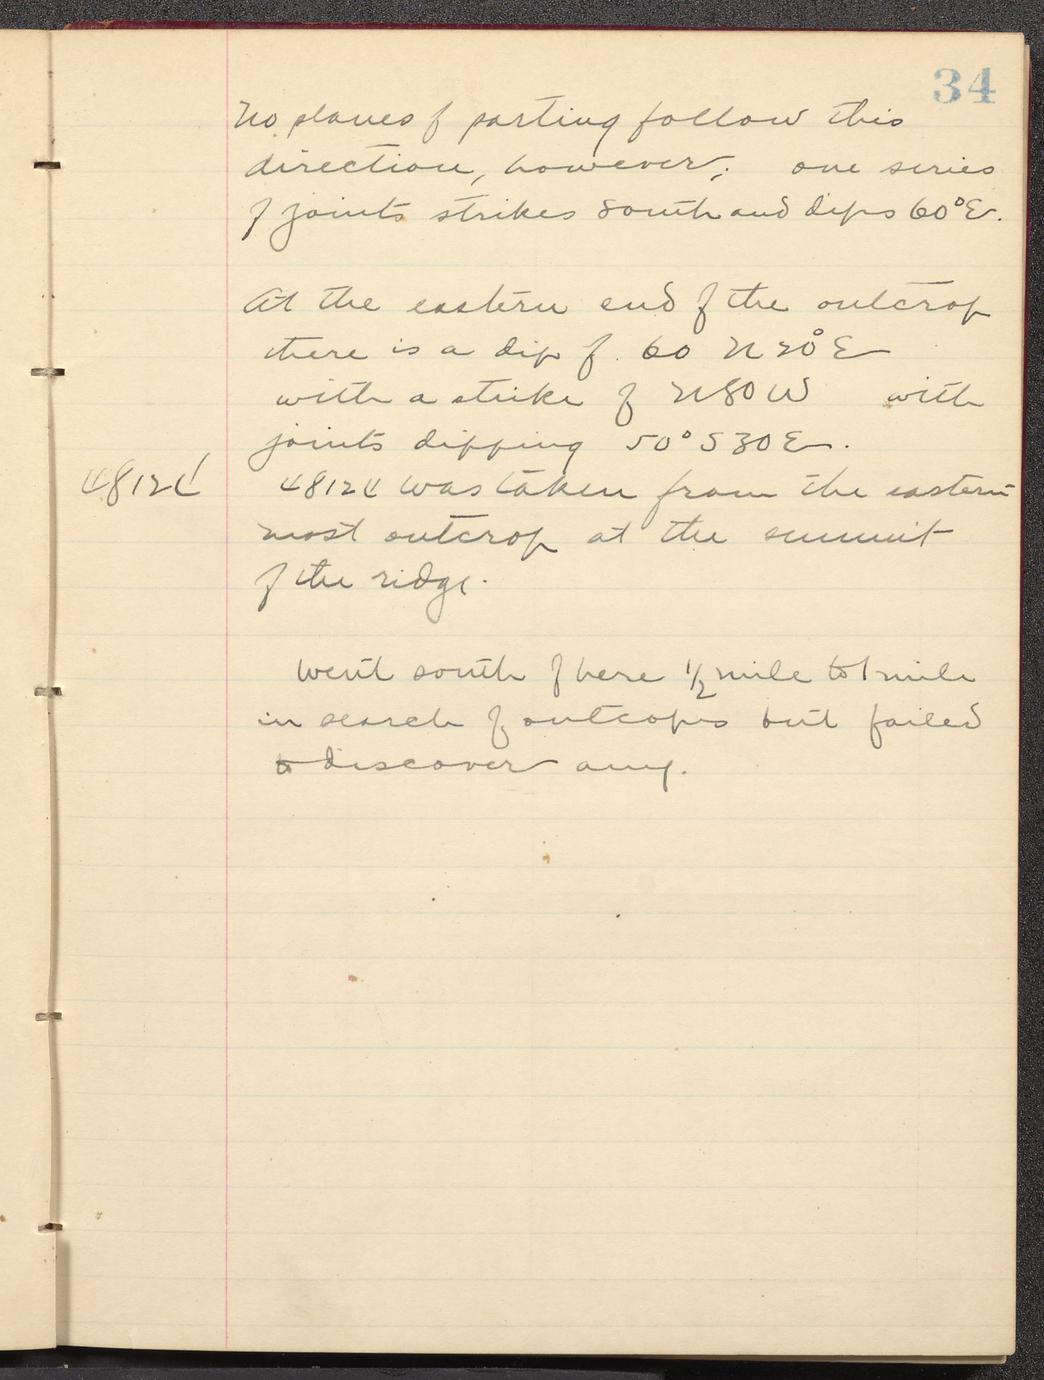 34
No planes of parting follow this
direction, however; one series
of joints strikes South and dips 60°E.
At the eastern end of the outcrop
there is a dip of 60 N20°E
with a strike of N80W with
joints dipping 50°S30E.
48124 48124 was taken from the eastern
most outcrop at the summit
of the ridge.
Went south of here 1/2 mile to 1 mile
in search of outcops but failed
to discover any.